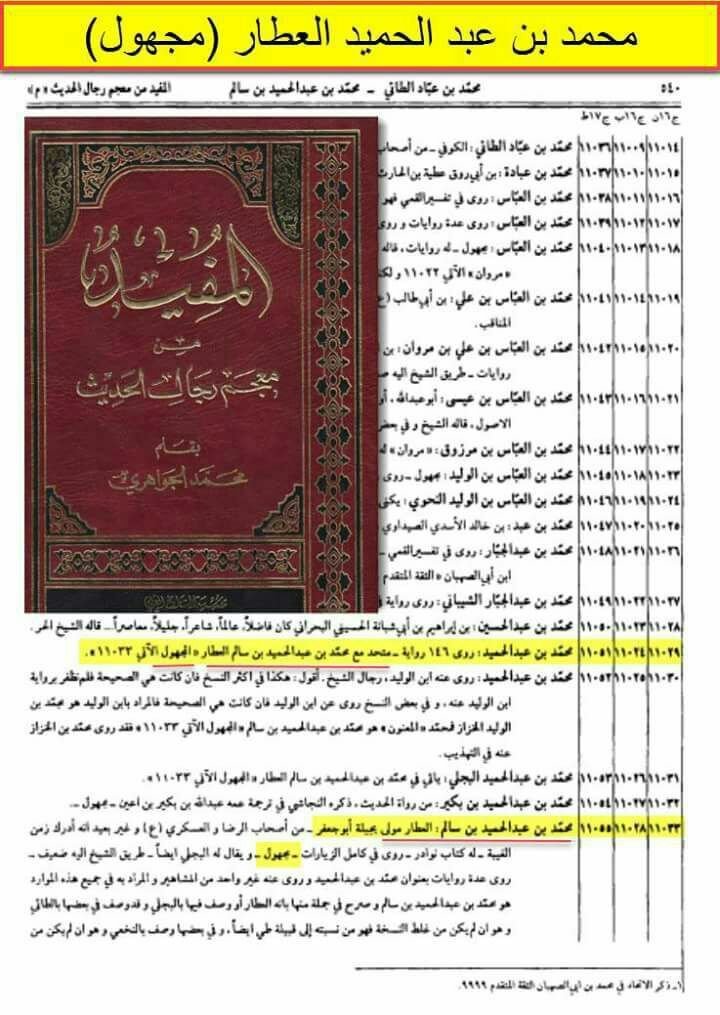 محمد بن عبد الحميد العطار (مجهول)
٥٤٠ محمّد بن عبّاد الطائي ــ محمّد بن عبدالحميد بن سالم المفيد من معجم رجال الحديث «م»
ج١٦ن ج١٦ب ج١٧ط
١١٠١٤ ١١٠٠٩ ١١٠٣٦ محمّد بن عبّاد الطائي: الكوفي ــ من أصحاب
١١٠١٥ ١١٠١٠ ١١٠٣٧ محمّد بن عبادة: بن أبي روق عطية بن الحارث
١١٠١٦ ١١٠١١ ١١٠٣٨ محمّد بن العبّاس: روى في تفسير القمي فهو
١١٠١٧ ١١٠١٢ ١١٠٣٩ محمّد بن العبّاس: روى عدة روايات و روى
١١٠١٨ ١١٠١٣ ١١٠٤٠ محمّد بن العبّاس: مجهول ــ له روايات، قاله
«مروان» الآتي ١١٠٢٢ و لكنه
١١٠١٩ ١١٠١٤ ١١٠٤١ محمّد بن العبّاس بن علي: بن أبي طالب (ع
المناقب.
١١٠٢٠ ١١٠١٥ ١١٠٤٢ محمّد بن العبّاس بن علي بن مروان: بن
روايات ــ طريق الشيخ اليه
١١٠٢١ ١١٠١٦ ١١٠٤٣ محمّد بن العبّاس بن عيسى: أبو عبدالله،
الاصول، قاله الشيخ و في بعض
١١٠٢٢ ١١٠١٧ ١١٠٤٤ محمّد بن العبّاس بن مرزوق: «مروان» له
١١٠٢٣ ١١٠١٨ ١١٠٤٥ محمّد بن العبّاس بن الوليد: مجهول ــ روى
١١٠٢٤ ١١٠١٩ ١١٠٤٦ محمّد بن العبّاس بن الوليد النحوي: يكنى
١١٠٢٥ ١١٠٢٠ ١١٠٤٧ محمّد بن عبد: بن خالد الأسدي الصيداوي
١١٠٢٦ ١١٠٢١ ١١٠٤٨ محمّد بن عبدالجبّار: روى في تفسير القمي ــ
ابن أبي الصهبان «الثقة المتقدم
١١٠٢٧ ١١٠٢٢ ١١٠٤٩ محمّد بن عبدالجبّار الشيباني: روى رواية في
١١٠٢٨ ١١٠٢٣ ١١٠٥٠ محمّد بن عبدالحسين: بن إبراهيم بن أبي شبانة الحسيني البحراني كان فاضلاً، عالماً، شاعراً، جليلاً، معاصراً... قاله الشيخ الحر.
١١٠٢٩ ١١٠٢٤ ١١٠٥١ محمّد بن عبدالحميد: روى ١٤٦ رواية ــ متحد مع محمّد بن عبدالحميد بن سالم العطار «المجهول الآتي ١١٠٣٣».
١١٠٣٠ ١١٠٢٥ ١١٠٥٢ محمّد بن عبدالحميد: روى عنه ابن الوليد، رجال الشيخ. أقول: هكذا في اكثر النسخ فان كانت هي الصحيحة فلم نظفر برواية
ابن الوليد عنه، و في بعض النسخ روى عن ابن الوليد فان كانت هي الصحيحة فالمراد بابن الوليد هو محمّد بن
الوليد الخزاز فمحمّد «المعنون» هو محمّد بن عبدالحميد بن سالم «المجهول الآتي ١١٠٣٣» فقد روى محمّد بن الخزاز
عنه في التهذيب.
١١٠٣١ ١١٠٢٦ ١١٠٥٣ محمّد بن عبدالحميد البجلي: ياتي في محمّد بن عبدالحميد بن سالم العطار «المجهول الآتي ١١٠٣٣».
١١٠٣٢ ١١٠٢٧ ١١٠٥٤ محمّد بن عبدالحميد بن بكير: من رواة الحديث، ذكره النجاشي في ترجمة عمه عبدالله بن بكير بن اعين ــ مجهول ــ.
١١٠٣٣ ١١٠٢٨ ١١٠٥٥ محمّد بن عبدالحميد بن سالم: العطار مولى بجيلة أبو جعفر ــ من أصحاب الرضا و العسكري (ع) و غير بعيد انه أدرك زمن
الغيبة ــ له كتاب نوادر ــ روى في كامل الزيارات ــ مجهول ــ و يقال له البجلي ايضاً ــ طريق الشيخ اليه ضعيف ــ
روى عدة روايات بعنوان محمّد بن عبدالحميد و روى عنه غير واحد من المشاهير و المراد به في جميع هذه الموارد
هو محمّد بن عبدالحميد بن سالم و صرح في جملة منها بانه العطار أو وصف فيها بالبجلي و قد وصف في بعضها بالطائي
و هو ان لم يكن من غلط النسخة فهو من نسبته إلى قبيلة طي ايضاً، و في بعضها وصف بالنخعي و هو ان لم يكن من
١ـ ذكر الاتحاد في محمد بن ابي الصهبان الثقة المتقدم ٩٩٩٩.
المفيد
من
معجم رجال الحديث
بقلم
محمد الجواهري